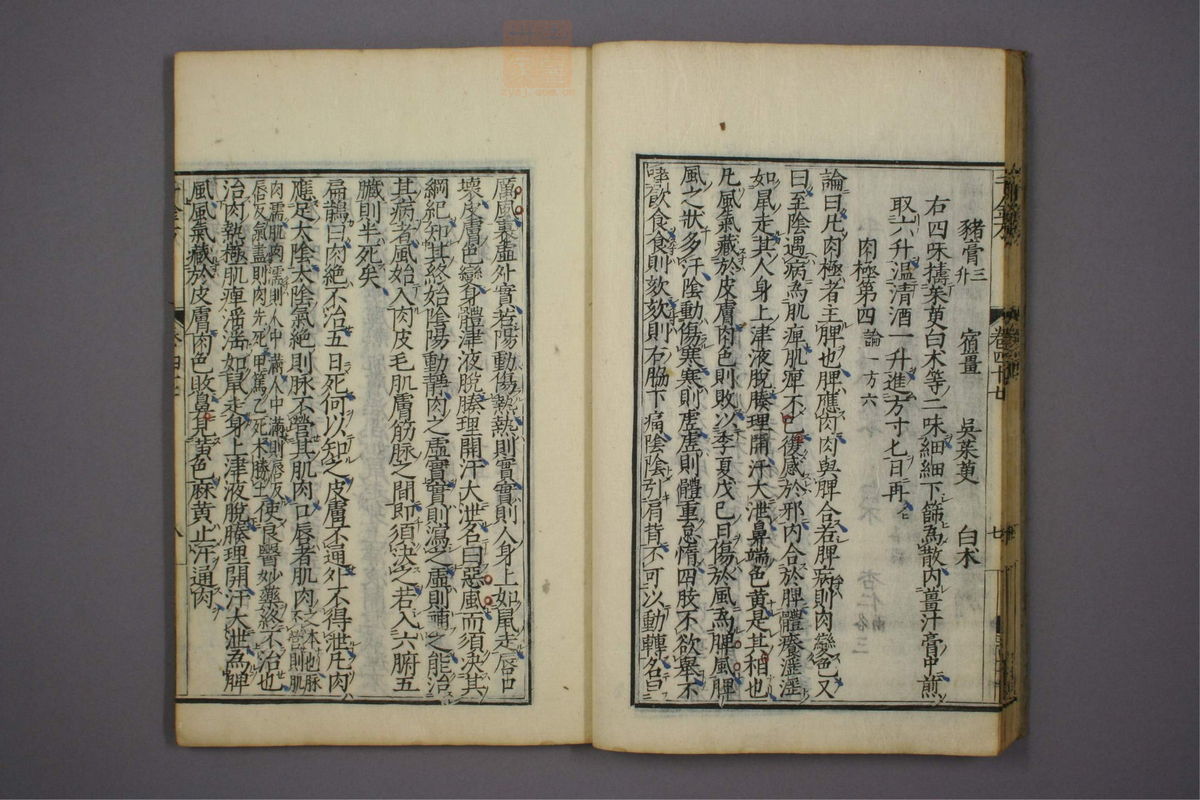 豬膏三升 宿薑 吳茱萸 白术
右四味擣茱萸白木等二味細細下篩爲散內薑汁膏中煎
取六升溫清酒一升進方寸匕日再
肉極第四論一方六
論曰凡肉極者主脾也脾應肉肉與脾合若脾病則肉變色又
曰至陰遇病爲肌痺肌痺不已復感於邪內合於脾體痒淫淫
如鼠走其人身上津液脫腠理開汗大泄鼻端色黃是其相也
凡風氣藏於皮膚肉色則敗以季夏戊巳日傷於風爲脾風脾
風之狀多汗陰動傷寒寒則虛虛則體重怠惰四肢不欲舉不
嗜飲食食則欬欬則右脇下痛陰陰引肩背不可以動轉名曰
厲風裏虛外實若陽動傷熱熱則實實則人身上如鼠走唇口
壞皮膚色變身體津液脫腠理開汗大泄名曰惡風而須決其
綱紀知其終始陰陽動靜肉之虛實實則瀉之虛則補之能治
其病者風始入肉皮毛肌膚筋脉之間即須決之若入六腑五
臟則半死矣
扁鵲曰肉絕不治五日死何以知之皮膚不通外不得泄凡肉
應足太陰太陰氣絕則脉不營其肌肉口唇者肌肉之本也脉不營則肌
肉濡肌肉濡則人中滿人中滿則唇反
唇反氣盡則肉先死甲篤乙死木勝土使良醫妙藥終不治也
治肉熱極肌痺淫淫如鼠走身上津液脫腠理開汗大泄爲脾
風風氣藏於皮膚肉色敗鼻見黃色麻黃止汗通肉
卷四十